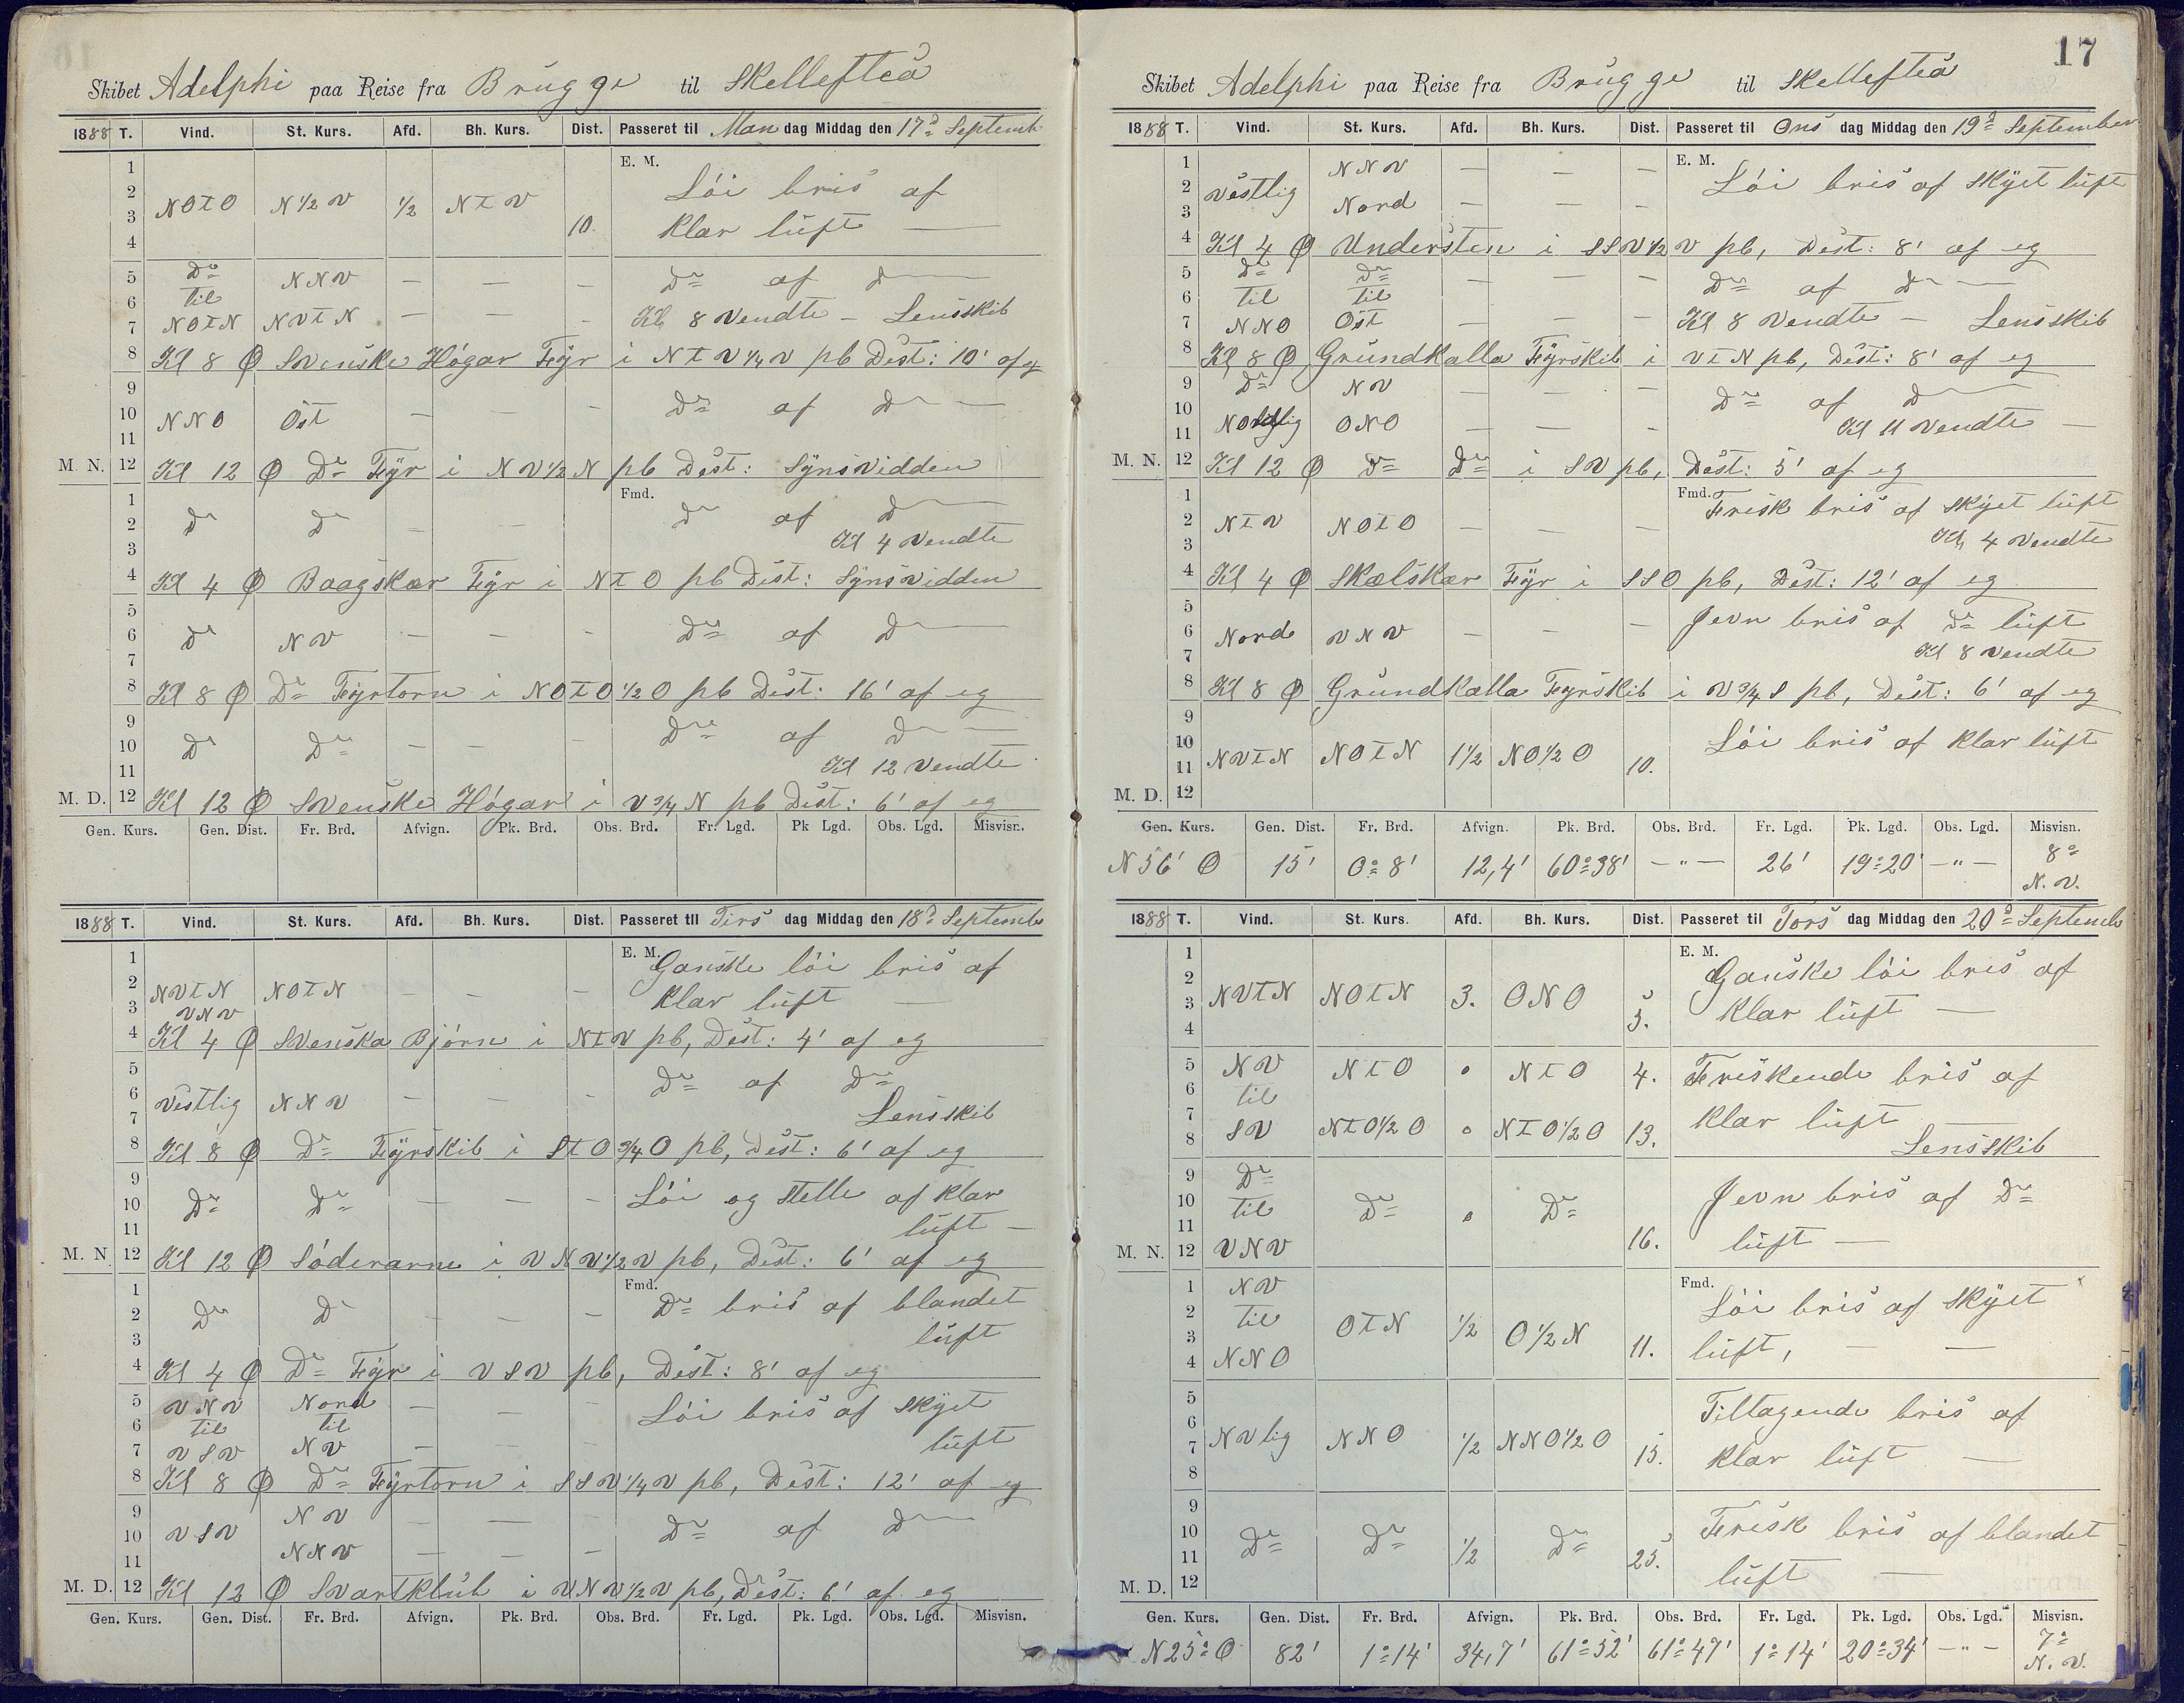 Skibet Adelphi paa Reise fra Brügge til Skellefteå
1888 T. Vind. St. Kurs. Afd. Bh. Kurs. Dist. Passeret til Man dag Middag den 17d Septemb
1 E. M.
2 NOTO N½V ½ NTV Löi bris af
3 10. klar lüft —
4
5 Do NNV — — — Do af D—
6 til
7 NOTN NVTN — — — Kl 8 Vendte — Lensskib
8 Kl 8 Ø Svenske Högar Fÿr i NTV¼V pb Dist: 10' af eg
9
10 NNO Ost — — — Do af D—
11
M. N. 12 Kl 12 Ø Do Fÿr i NV½N pb Dist: Sÿnsvidden
1 Fmd.
2 Do Do — — Do af D—
3 Kl 4 Vendte
4 Kl 4 Ø Baagskær Fÿr i NTO pb Dist: Sÿnsvidden
5
6 Do NV — — — Do af D—
7
8 Kl 8 Ø Do Fÿrtorn i NOTO½O pb Dist: 16' af eg
9
10 Do Do — — — Do af D—
11 Kl 12 Vendte
M. D. 12 Kl 12 Ø Svenske Högar i V¾N pb Dist: 6' af eg
Gen. Kurs. Gen. Dist. Fr. Brd. Afvign. Pk. Brd. Obs. Brd. Fr. Lgd. Pk Lgd. Obs. Lgd. Misvisn.
1888 T. Vind. St. Kurs. Afd. Bh. Kurs. Dist. Passeret til Tirs dag Middag den 18d Septemb
1 E. M. Ganske löi bris af
2 NVTN NOTN — — — klar lüft —
3 VNV
4 Kl 4 Ø Svenska Björn i NTV pb, Dist: 4' af eg
5 Do af Do
6 Vestlig NNV — — —
7 Lensskib
8 Kl 8 Ø Do Fÿrskib i STO¾O pb, Dist: 6' af eg
9
10 Do Do — — — Löi og stille af klar
11 lüft —
M. N. 12 Kl 12 Ø Söderarne i VNV½V pb, Dist: 6' af eg
1 Fmd.
2 Do D — — — Do bris af blandet
3 lüft
4 Kl 4 Ø Do Fÿr i VSV pb, Dist: 8' af eg
5 VNV Nord — — — Löi bris af skÿet
6 til til
7 VSV NV — — — lüft
8 Kl 8 Ø Do Fÿrtorn i SSV¼V pb, Dist: 12' af eg
9 NV — — —
10 VSV Do af D—
11 NNV — — —
M. D. 12 Kl 12 Ø Svartklüb i VNV½V pb, Dist: 6' af eg
Gen. Kurs. Gen. Dist. Fr. Brd. Afvign. Pk. Brd. Obs. Brd. Fr. Lgd. Pk. Lgd. Obs. Lgd. Misvisn.
17
Skibet Adelphi paa Reise fra Brügge til Skellefteå
1888 T. Vind. St. Kurs. Afd. Bh. Kurs. Dist. Passeret til Ons dag Middag den 19d September
1 NNV — — — E. M.
2 Vestlig Löi bris af skÿet lüft
3 Nord — — —
4 Kl 4 Ø Understen i SSV½V pb, Dist: 8' af eg
5 Do Do — — — Do af D—
6 til til
7 NNO Ost — — — Kl 8 Vendte — Lensskib
8 Kl 8 Ø Gründkalla Fÿrskib i VTN pb, Dist: 8' af eg
9 Do NV — — — Do af D—
10 Nordlig ONO
11 — — — Kl 11 Vendte —
M. N. 12 Kl 12 Ø Do Do i SV pb, Dist: 5' af eg
1 Fmd. Frisk bris af skÿet lüft
2 NTV NOTO — — —
3 Kl 4 Vendte
4 Kl 4 Ø Skælskær Fÿr i SSO pb, Dist: 12' af eg
5 Jevn bris af Do lüft
6 Nord VNV — — —
7 Kl 8 Vendte
8 Kl 8 Ø Gründkalla Fÿrskib i V¾S pb, Dist: 6' af eg
9
10 Löi bris af klar lüft
11 NVTN NOTN 1½ NO½O 10.
M. D. 12
Gen. Kurs. Gen. Dist. Fr. Brd. Afvign. Pk. Brd. Obs. Brd. Fr. Lgd. Pk. Lgd. Obs. Lgd. Misvisn.
N 56' O 15' 0° 8' 12,4' 60°38' —"— 26' 19°20' —"— 8° N. V.
1888 T. Vind. St. Kurs. Afd. Bh. Kurs. Dist. Passeret til Tors dag Middag den 20d Septemb
1 E. M.
2 Ganske löi bris af
3 NVTN NOTN 3. ONO 5. klar lüft —
4
5 NV NTO ° NTO 4. Friskende bris af
6 til
7 klar lüft
8 SV NTO½O ° NTO½O 13. Lensskib
9 Do
10 til Do ° Do Jevn bris af Do
11
M. N. 12 VNV 16. lüft —
1 NV Fmd.
2 til Löi bris af skÿet
3 OTN ½ O½N 11.
4 NNO lüft, — —
5
6 Tiltagende bris af
7 NVlig NNO ½ NNO½O 15. klar lüft —
8
9
10 Do Do Do Frisk bris af blandet
11 ½ 25. lüft —
M. D. 12
Gen. Kurs. Gen. Dist. Fr. Brd. Afvign. Pk. Brd. Obs. Brd. Fr. Lgd. Pk. Lgd. Obs. Lgd. Misvisn.
N 25° O 82' 1°14' 34,7' 61°52' 61°47' 1°14' 20°34' —"— 7° N. V.